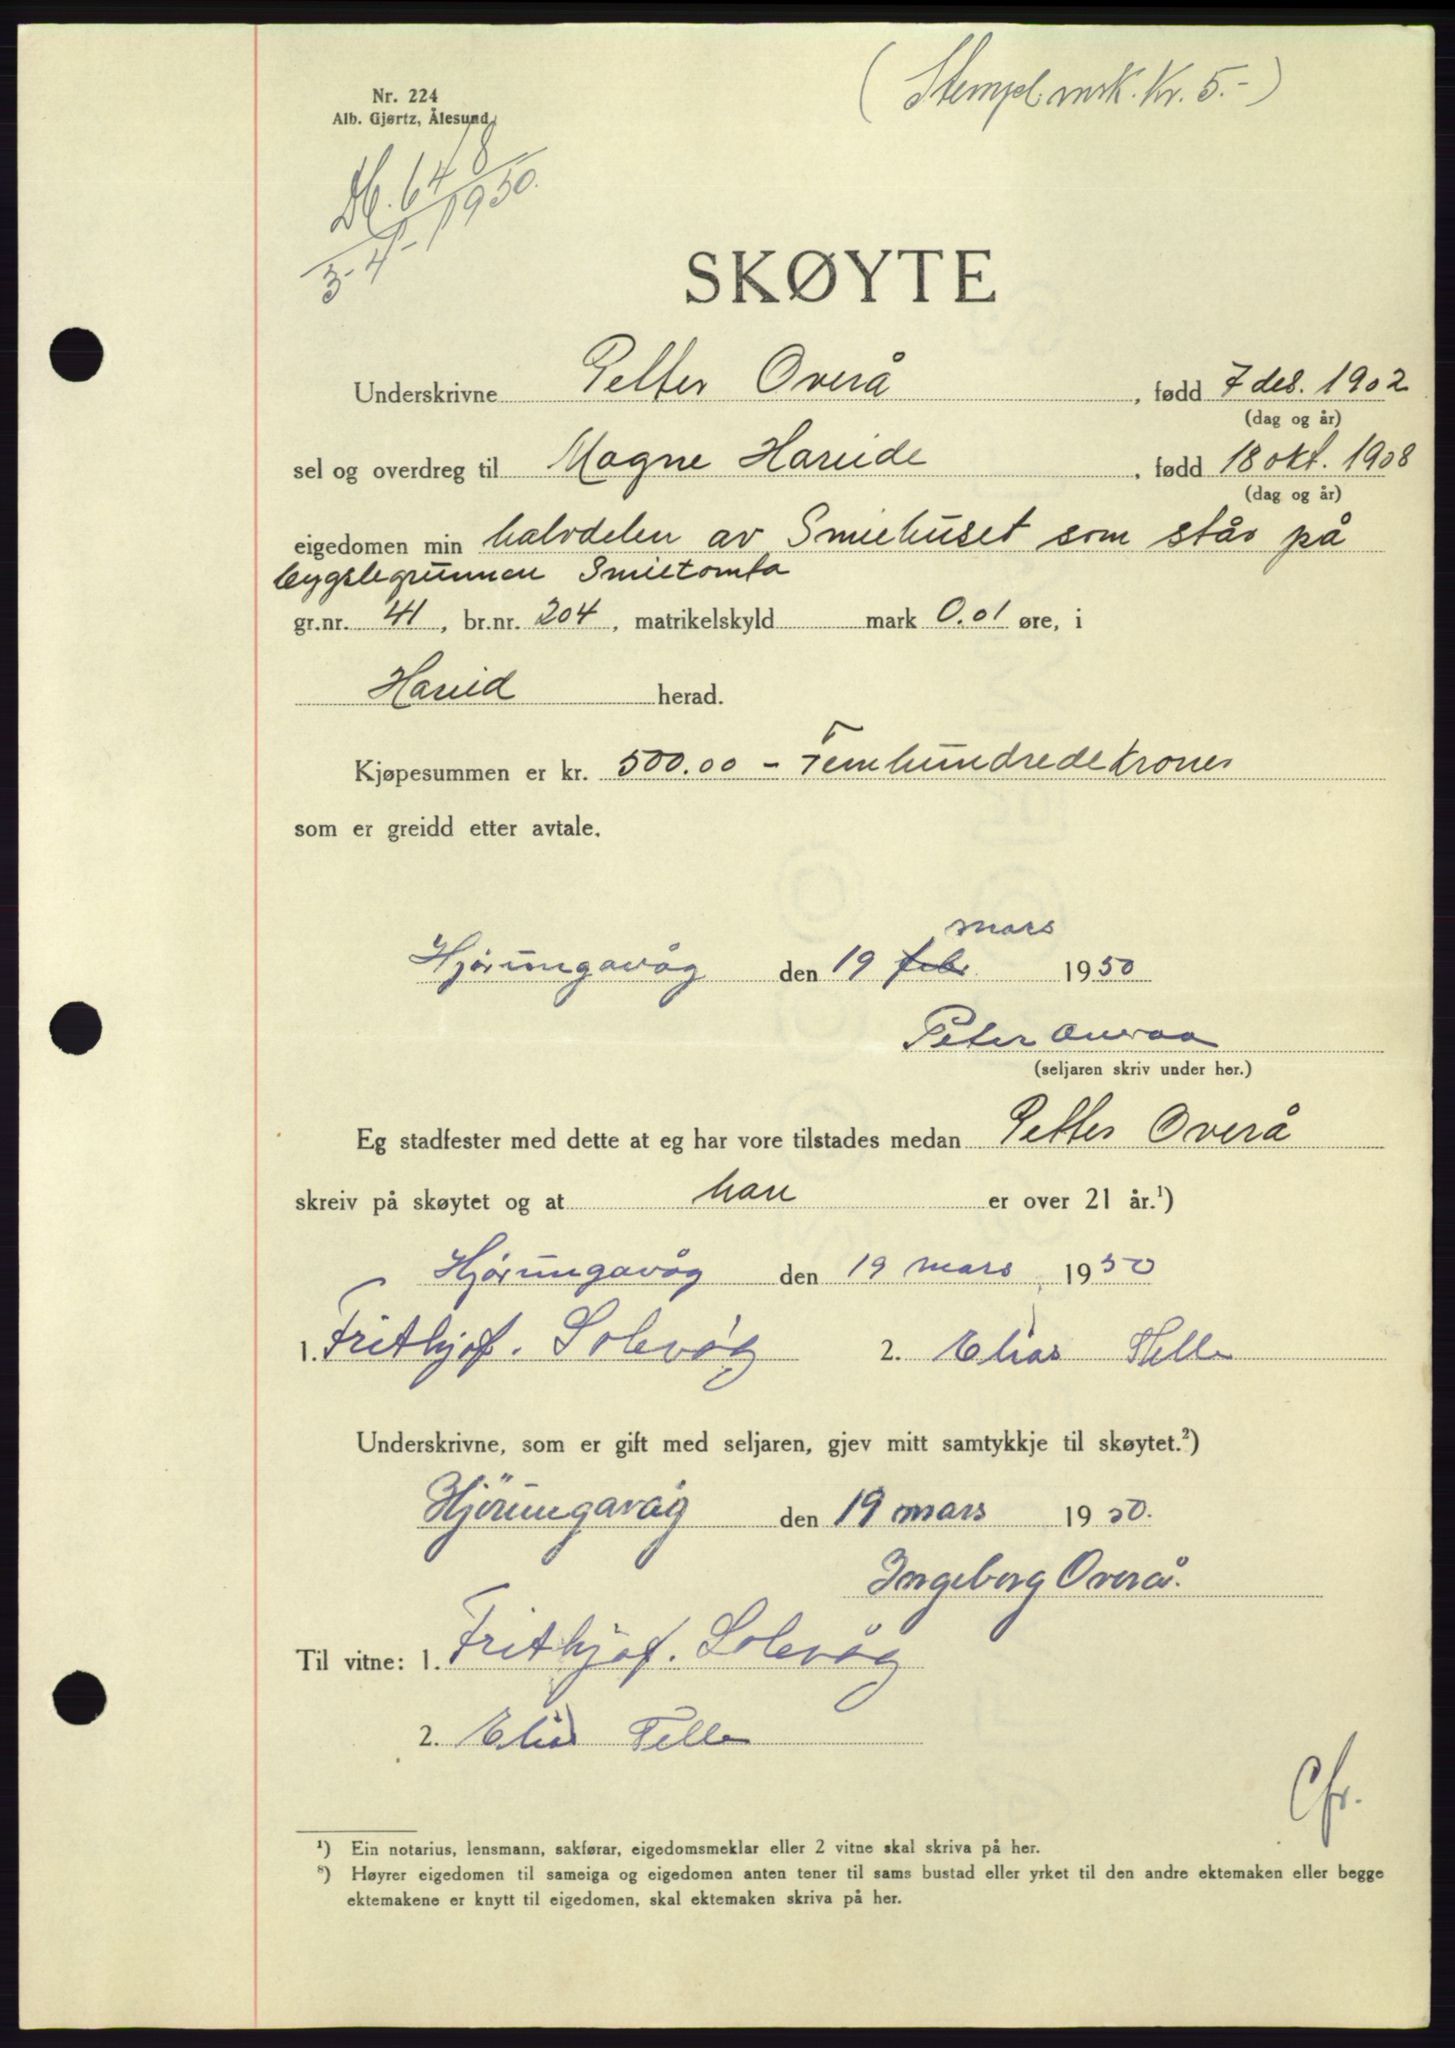 (Stempl.mrk. Kr. 5.-)
Nr. 224
Alb. Gjørtz, Ålesund.
Db. 648
3-4-1950.
SKØYTE
Underskrivne Petter Overå, fødd 7 des. 1902
(dag og år)
sel og overdreg til Magne Hareide, fødd 18 okt. 1908
(dag og år)
eigedomen min halvdelen av Smiehuset som står på
bygslegrunnen Smietomta
gr.nr. 41, br.nr. 204, matrikelskyld mark 0.01 øre, i
Hareid herad.
Kjøpesummen er kr. 500.00 - Femhundrede kroner
som er greidd etter avtale.
mars
Hjørungavåg den 19 febr 1950
Peter Overaa
(seljaren skriv under her.)
Eg stadfester med dette at eg har vore tilstades medan Petter Overå
skreiv på skøytet og at han er over 21 år.¹)
Hjørungavåg den 19 mars 1950
1. Frithjof. Solevåg 2. Elias Telle
Underskrivne, som er gift med seljaren, gjev mitt samtykkje til skøytet.²)
Hjörungavåg den 19 mars 1950.
Ingeborg Overå.
Til vitne: 1. Frithjof. Solevåg
2. Elias Telle
Cfr.
¹) Ein notarius, lensmann, sakførar, eigedomsmeklar eller 2 vitne skal skriva på her.
²) Høyrer eigedomen til sameiga og eigedomen anten tener til sams bustad eller yrket til den andre ektemaken eller begge
ektemakene er knytt til eigedomen, skal ektemaken skriva på her.